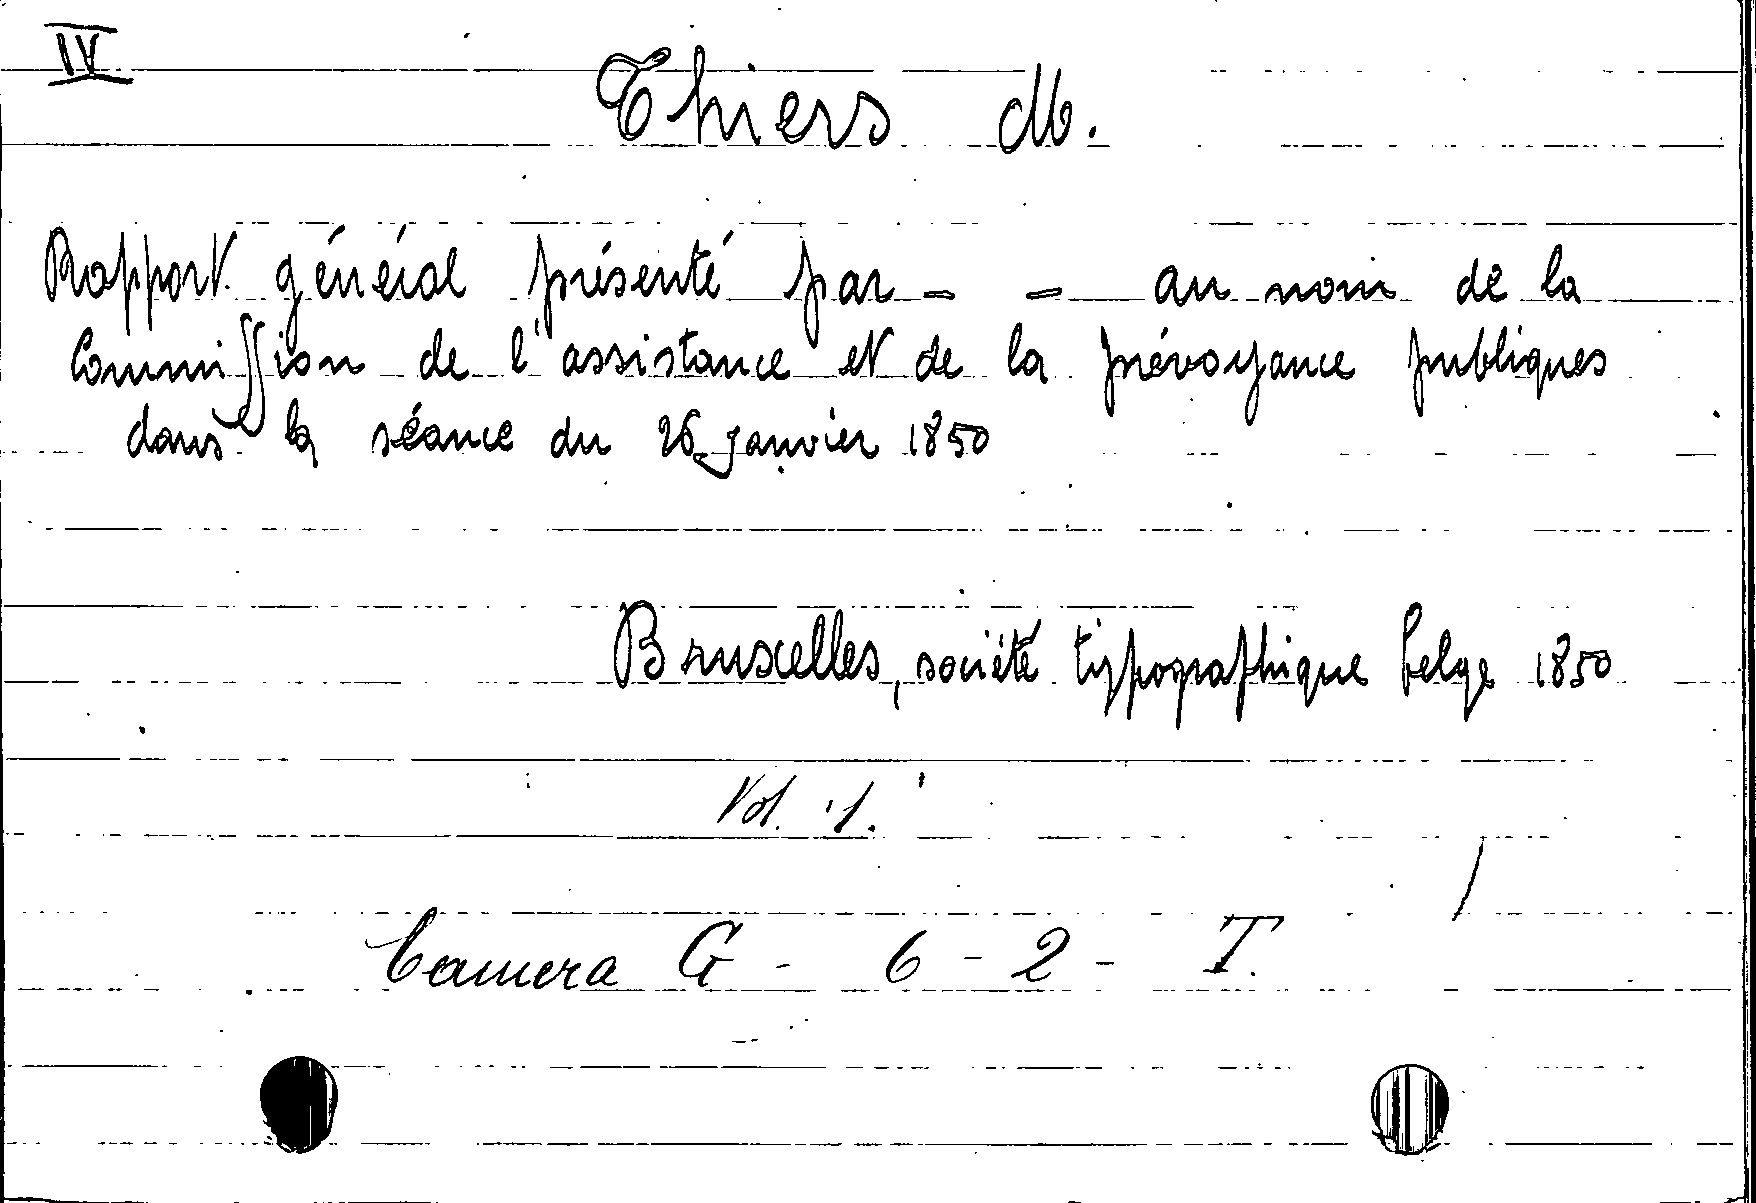 IV
Thiers M.
Rapport général présenté par - - au nom de la
Commission de l'assistance et de la prévoyance publiques
dans la séance du 26 janvier 1850
Bruxelles, société typographique belge 1850
Vol. 1.
Camera G - 6 - 2 - T.